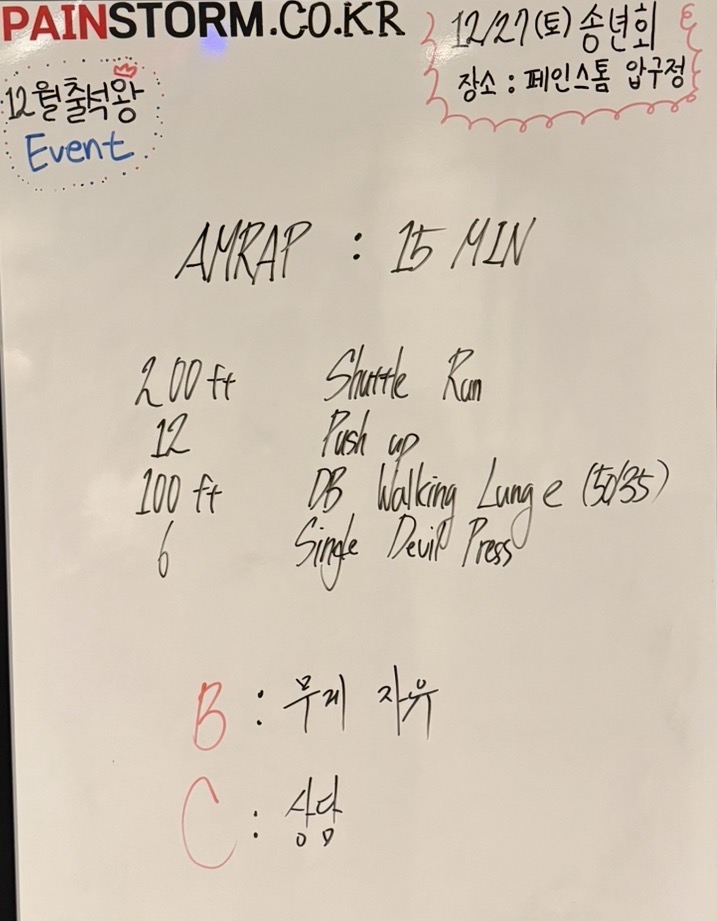 PAINSTORM.CO.KR
12/27(토) 송년회
장소 : 페인스톰 압구정
12월 출석왕
Event
AMRAP : 15 MIN
200 ft Shuttle Run
12 Push up
100 ft DB Walking Lunge (50/35)
6 Single Devil Press
B : 무게 자유
C : 상담